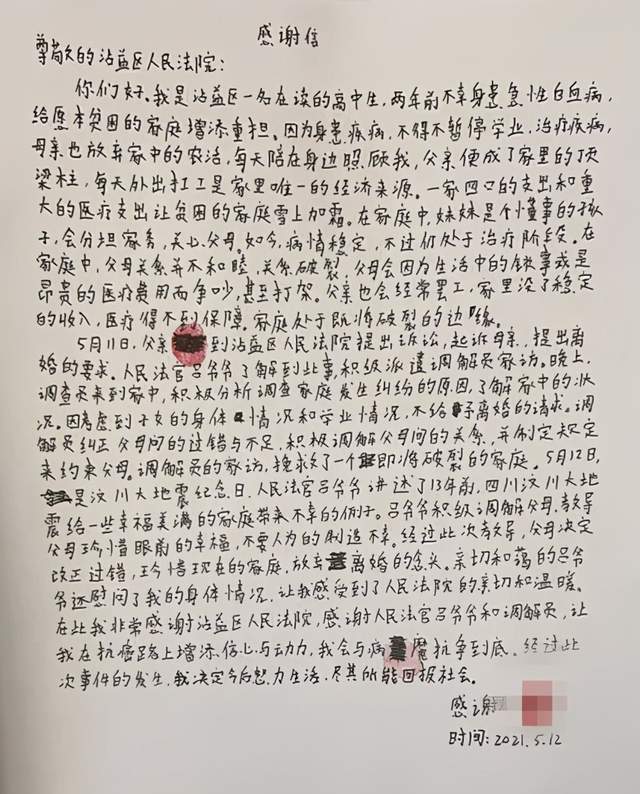 感谢信
尊敬的沾益区人民法院：
你们好。我是沾益区一名在读的高中生，两年前不幸身患急性白血病，
给原本贫困的家庭增添重担。因为身患疾病，不得不暂停学业，治疗疾病，
母亲也放弃家中的农活，每天陪在身边照顾我，父亲便成了家里的顶
梁柱，每天外出打工是家里唯一的经济来源。一家四口的支出和重
大的医疗支出让贫困的家庭雪上加霜。在家庭中，妹妹是个懂事的孩
子，会分担家务，关心父母。如今，病情稳定，不过仍处于治疗阶段。在
家庭中，父母关系并不和睦，关系破裂，父母会因为生活中的锁事或是
昂贵的医疗费用而争吵，甚至打架。父亲也会经常罢工，家里没了稳定
的收入，医疗得不到保障。家庭处于既将破裂的边缘。
5月11日，父亲到沾益区人民法院提出诉讼，起诉母亲，提出离
婚的要求。人民法官吕爷爷了解到此事，积级派遣调解员家访。晚上，
调查员来到家中，积极分析调查家庭发生纠纷的原因，了解家中的状
况。因考虑到子女的身体情况和学业情况，不给予离婚的请求。调
解员纠正父母间的过错与不足，积极调解父母间的关系，并制定规定
来约束父母。调解员的家访，挽救了一个即将破裂的家庭。5月12日，
是汶川大地震纪念日，人民法官吕爷爷讲述了13年前，四川汶川大地
震给一些幸福美满的家庭带来不幸的例子。吕爷爷积级调解父母，教导
父母珍惜眼前的幸福，不要人为的制造不幸。经过此次教导，父母决定
改正过错，珍惜现在的家庭，放弃离婚的念头。亲切和蔼的吕爷
爷还慰问了我的身体情况，让我感受到了人民法院的亲切和温暖。
在此我非常感谢沾益区人民法院，感谢人民法官吕爷爷和调解员，让
我在抗癌路上增添信心与动力，我会与病魔抗争到底。经过此
次事件的发生，我决定今后努力生活，尽其所能回报社会。
感谢
时间：2021.5.12